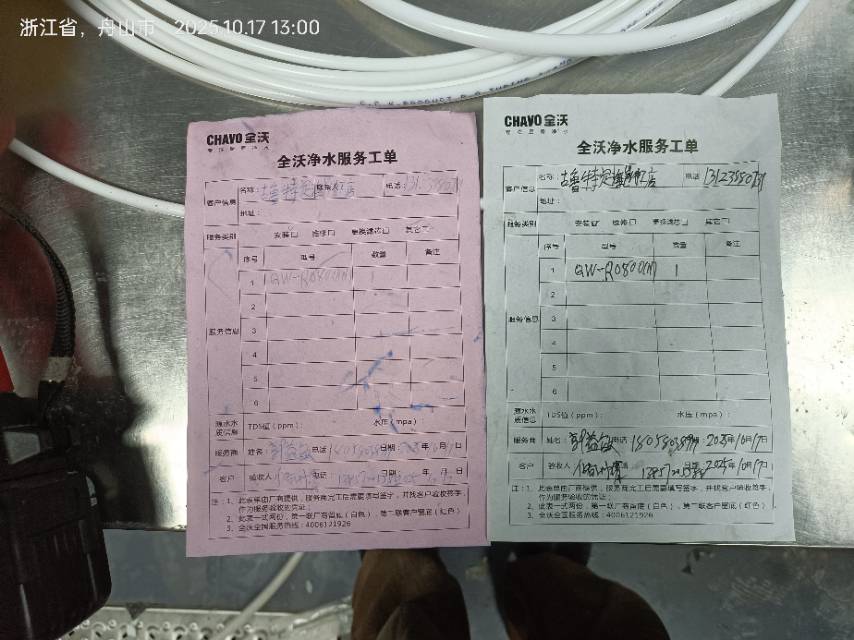 浙江省，舟山市 2025.10.17 13:00
CHAVO 全沃
全沃净水服务工单
客户信息
名称：
电话：
地址：
服务类别 安装 维修 更换滤芯 其它
序号 型号 数量 备注
服务信息
1 QW-R0800
2
3
4
5
6
源水水质信息 TDS值（ppm）： 水压（mpa）：
服务商 姓名： 电话 日期： 年 月 日
客户 验收人 电话： 日期： 年 月 日
注：1、此表单由厂商提供，服务商完工后需要填写签字，并找客户验收签字，
作为服务验收的凭证；
2、此表一式两份，第一联厂商留底（白色），第二联客户留底（红色）
3、全沃全国服务热线：4006121926
CHAVO 全沃
全沃净水服务工单
客户信息
名称：
电话
地址：
服务类别 安装 维修 更换滤芯 其它
序号 型号 数量 备注
服务信息
1 QW-R0800 1
2
3
4
5
6
源水水质信息 TDS值（ppm）： 水压（mpa）：
服务商 姓名： 电话 2025年10月17日
客户 验收人 2025年10月17日
注：1、此表单由厂商提供，服务商完工后需要填写签字，并找客户验收签字，
作为服务验收的凭证；
2、此表一式两份，第一联厂商留底（白色），第二联客户留底（红色）
3、全沃全国服务热线：4006121926